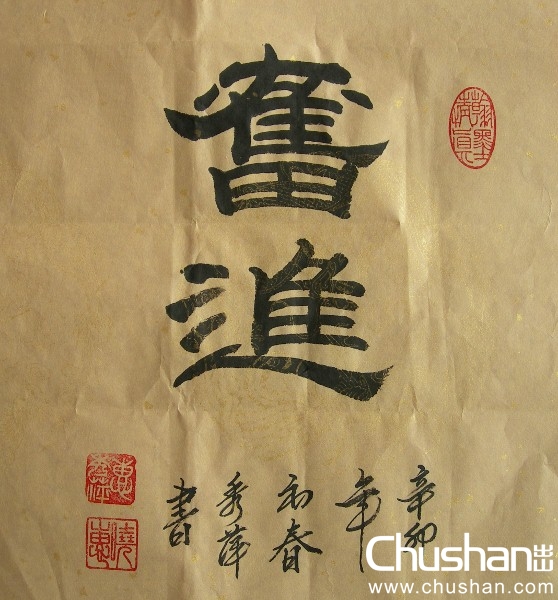 奮進
辛卯
年
初春
秀萍
書
Chushan出山
www.chushan.com